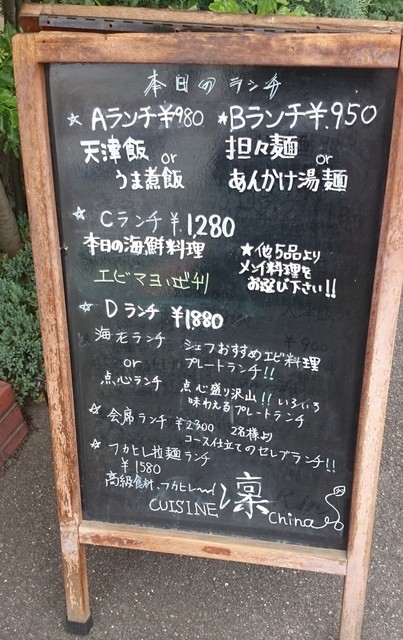 本日のランチ
☆Aランチ¥980 ★Bランチ¥.950
天津飯 or 担々麺 or
うま煮飯 あんかけ湯麺
☆Cランチ ¥.1,280
本日の海鮮料理 ★他5品より
メイン料理を
エビマヨorエビチリ お選び下さい!!
☆Dランチ ¥1880
海老ランチ シェフおすすめエビ料理
or プレートランチ!!
点心ランチ 点心盛り沢山!!いろいろ
味わえるプレートランチ
☆会席ランチ ¥2300 2名様より
コース仕立てのセレブランチ!!
☆フカヒレ拉麺ランチ
¥1580
高級食材、フカヒレ〜
CUISINE 凛 China